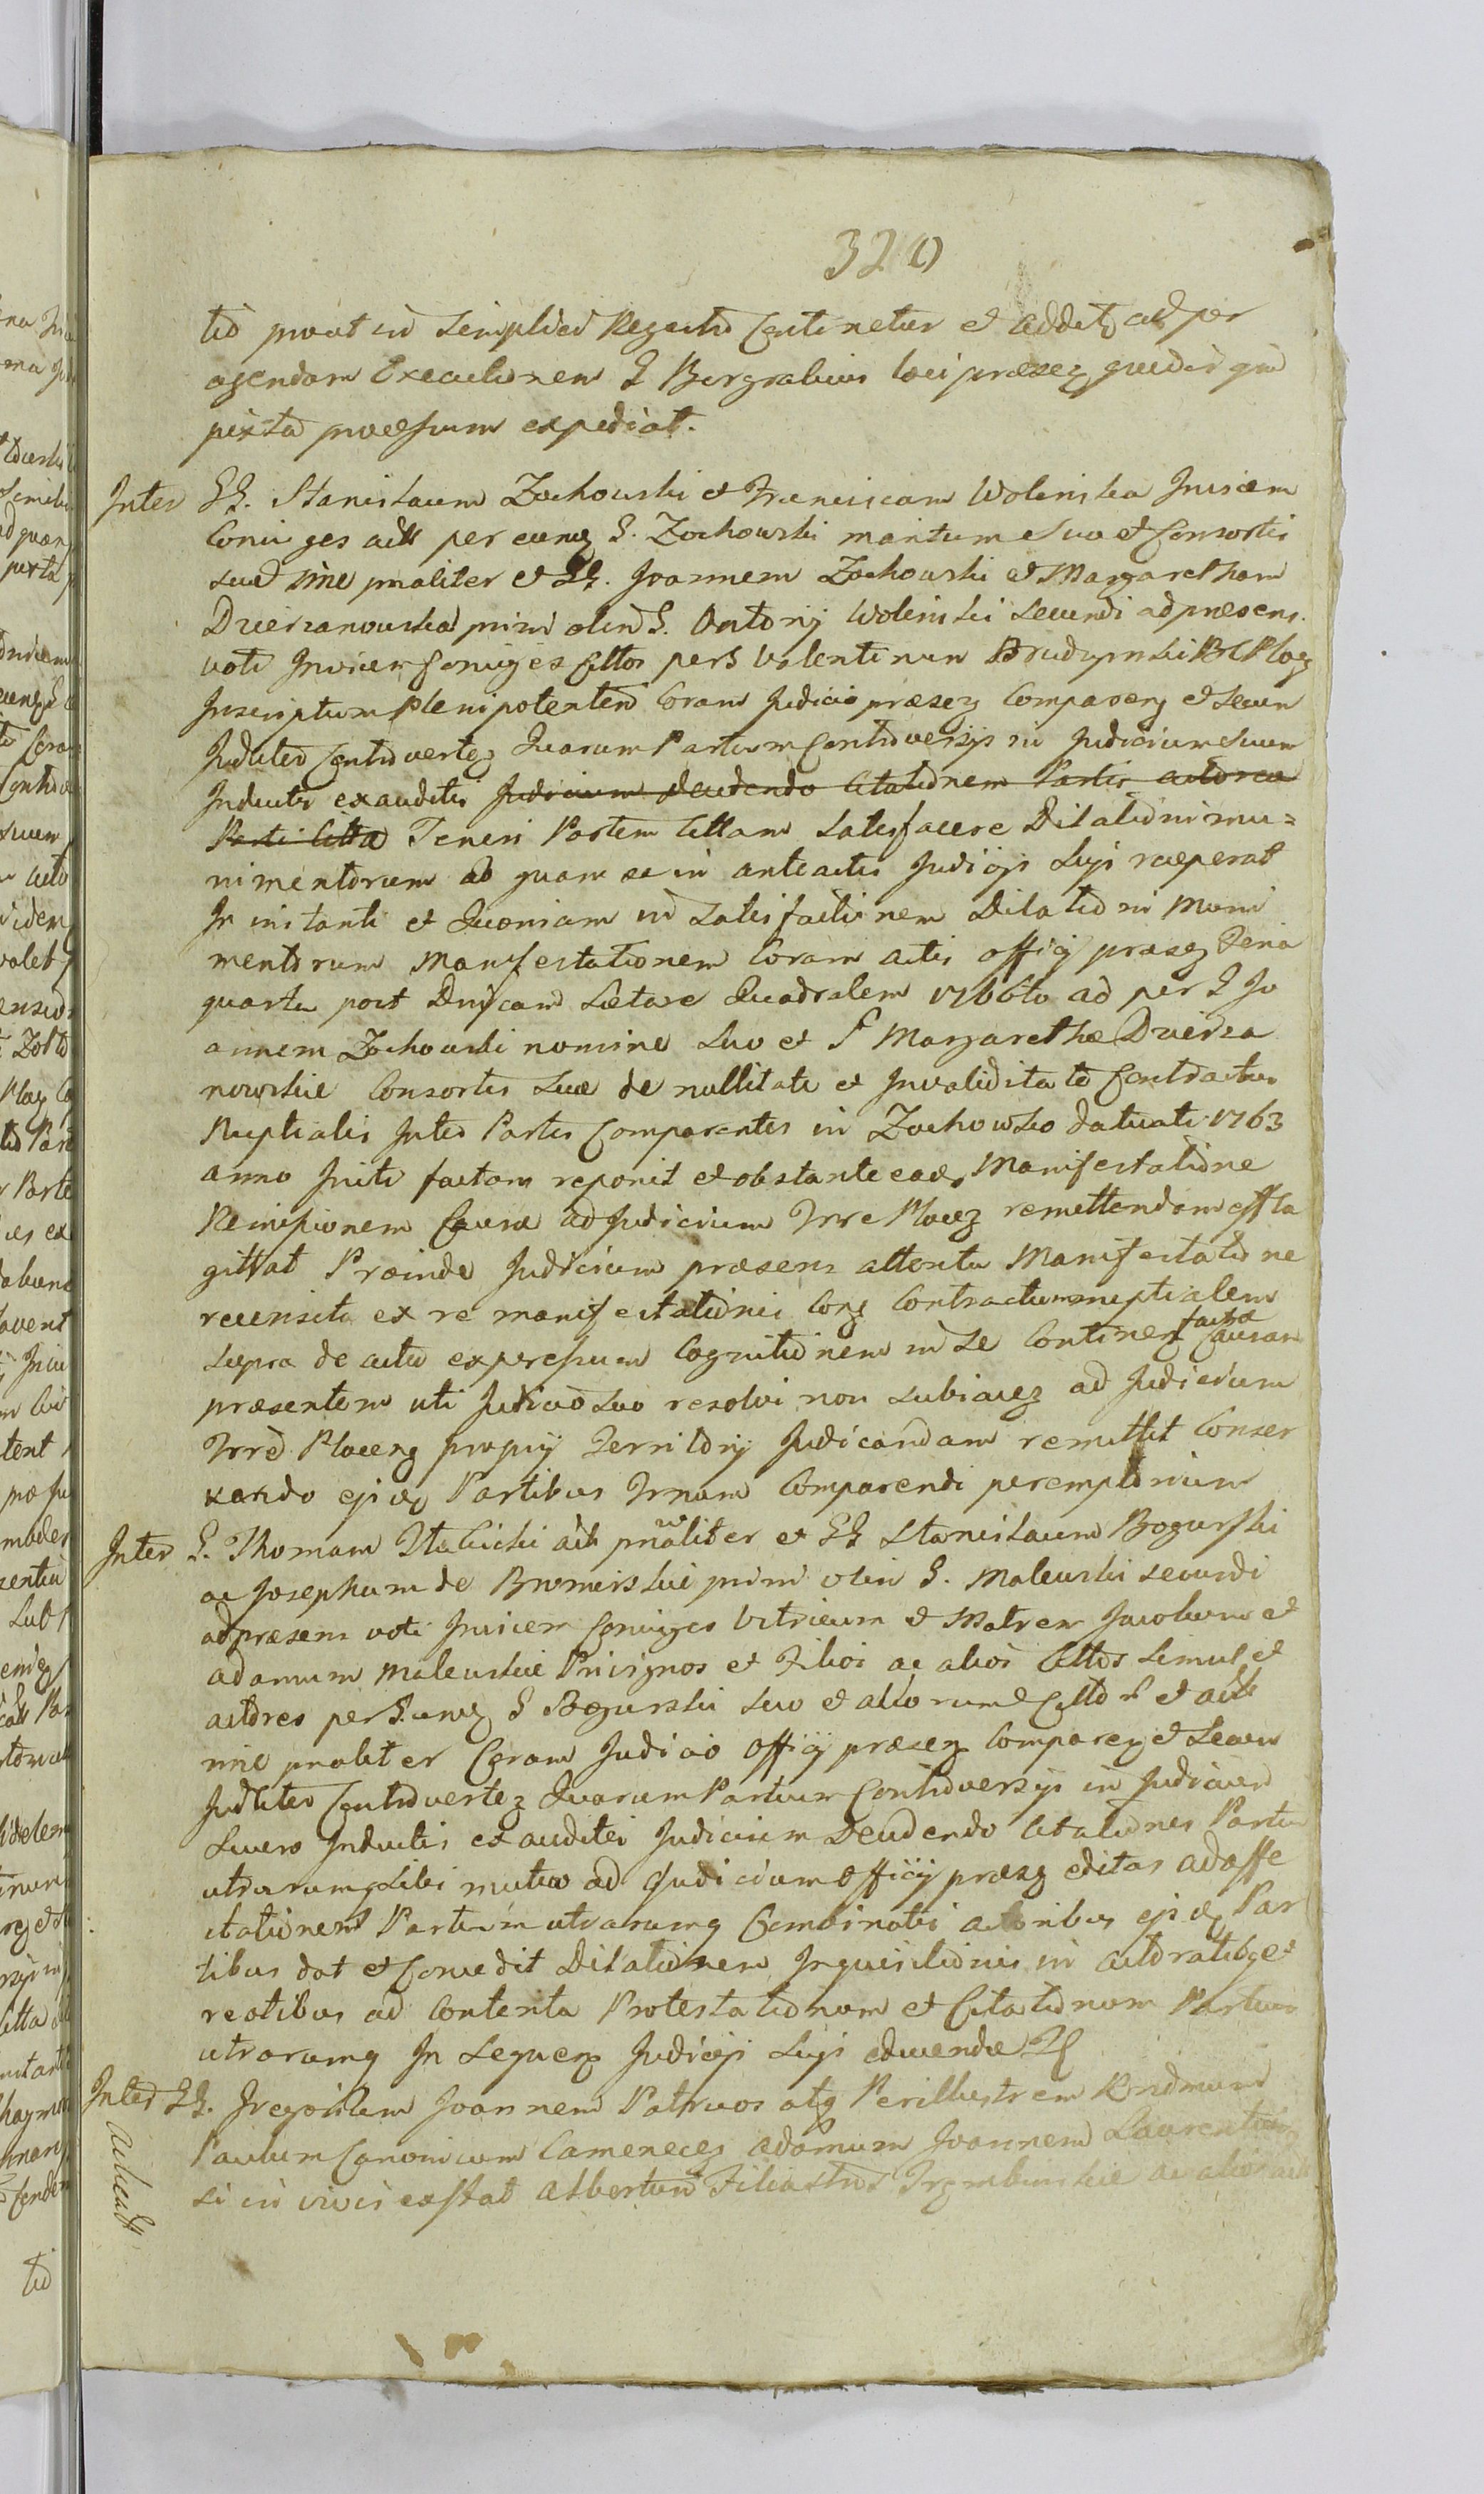 320
tio prout in simplici Regestro Continetur et addit ad per
agendam Executionem G Burgrabium loci præseñ
juxta processum expediat.
Inter GG. Stanislaum Zochowski et Franciscam Wolinska Invicem
Coniuges act per eunđ G. Zochowski maritum suo et Consortis
suæ nñe pñaliter et GG. Joannem Zochowski et Margaretham
Dzierzanowska primi olim G. Antonij Wolinski secundi ad præsens
voti Invicem Coniuges Cittos per G Valentinum Brudzynski
Inscriptum Plenipotentem Coram Judicio præseñ Comparenŧ et secum
Juditer Controverteñ Quarum Partium Controversijs in Judicium suum
Inductis exauditis Judicium decidendo Citationem Partis actorea
Parti Citta Teneri Partem Cittam satisfacere Dilationi mu=
nimentorum ad quam se in anteactis Judicijs suis receperat
In instanti et Quoniam in satisfactionem Dilationi Muni
mentorum Manifestationem Coram actis officij præseñ Feria
quarta post Dnicam Lætare Quadralem 1766to ad per G Jo
annem Zochowski nomine suo et G Margarethæ Dzierza
nowskie Consortis suæ de nullitate et Invaliditate Contractus
Nuptialis Inter Partes Comparentes in Zochowko datuati 1763
anno Initi factam reponit et obstante eadē Manifestatione
Remissionem Causæ ad Judicium Trre Plocen remittendam effla
gittat Proinde Judicium præsens attenta Manifestatione
recensita ex re manifestationis Conŧ Contractum nuptialem
supra de actu expressum Cognitionem in se Continen facta Causam
præsentem uti Judicio suo resolvi non subiacen ad Judicium
Trre Plocen proprij Territorij Judicandam remittit Conser
vando ejsdē Partibus Trnum Comparendi peremptorium
Inter G. Thomam act pñaliter et GG Stanislaum Bogurski
ac Josepham de Bromirskie primi olim G. Malewski secundi
ad præsens voti Invicem Coniuges Vitricum et Matrem Jacobum et
adamum Malewskie Privignos et Filios ac alios Cittos simul et
actores per G. eunđ G Bogurski suo et aliorum Citto et act
nñe pñaliter Coram Judicio officij præseñ Comparen et secum
Juditer Controverteñ Quarum Partium Controversijs in Judicium
suum Inductis exauditis Judicium Decidendo Citationes Partium
utrarumq sibi mutuo ad Judicium Officij præseñ editas ad affe
ctationem Partium utrarumq Combinatis actoribus ejsdē Par
tibus dat et Concedit Dilationem Inquisitionis in actoratibq et
reatibus ad Contenta Protestationum et Citationum Partium
utrarumq In sequen Judicijs suis educendæ
Inter GG. Gregorium Joannem Patruos atq Perillustrem Rndmum
Paulum Canonicum Camenecen adamum Joannem Laurentium
si in vivis exstat Albertum Filiastros ac alios act